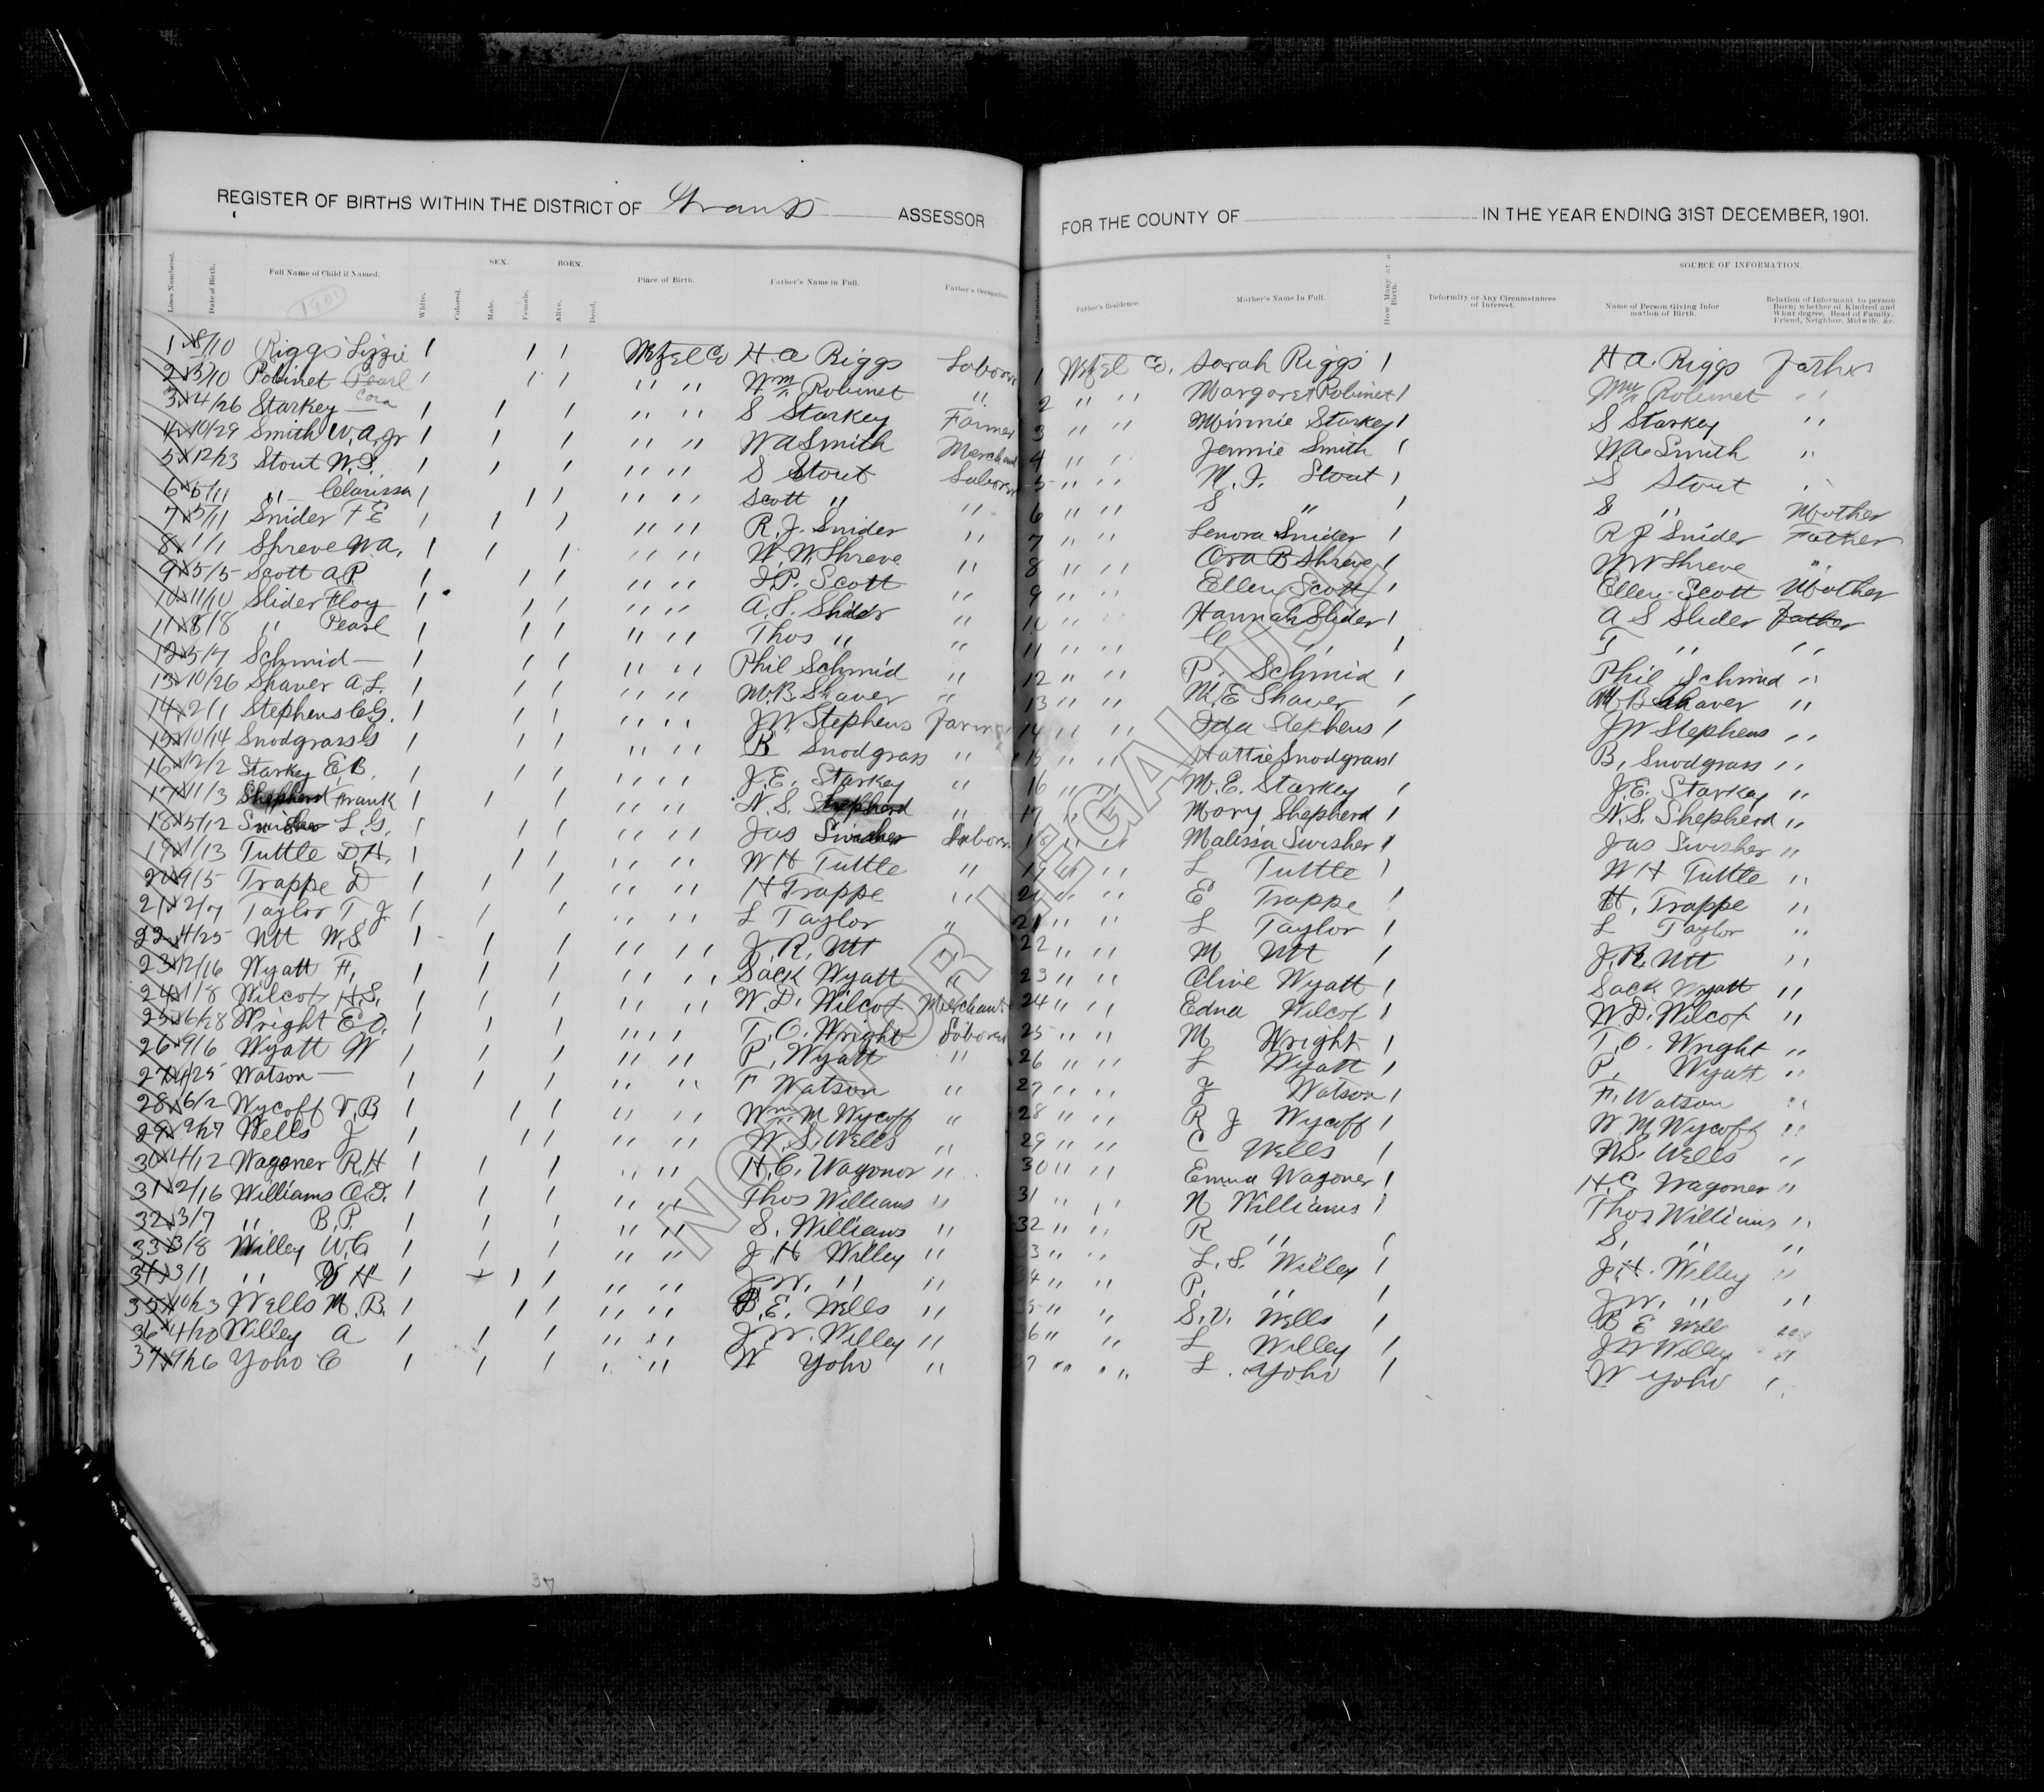 REGISTER OF BIRTHS WITHIN THE DISTRICT OF Grant ASSESSOR FOR THE COUNTY OF IN THE YEAR ENDING 31ST DECEMBER, 1901.
SEX. BORN. SOURCE OF INFORMATION.
Lines Numbered. Date of Birth. Full Name of Child if Named. White. Colored. Male. Female. Alive. Dead. Place of Birth. Father's Name in Full. Father's Occupation. Father's Residence. Mother's Name In Full. How Many at a Birth. Deformity or Any Circumstances of Interest. Name of Person Giving Information of Birth. Relation of Informant to person Born; whether of Kindred and What degree, Head of Family, Friend, Neighbor, Midwife, &c.
1901
1 8/10 Riggs Lizzie 1 1 1 Wetzel Co H A Riggs Labor 1 Wetzel Co. Sarah Riggs 1 H A. Riggs Father
2 3/10 Robinet Pearl 1 1 1 " " Wm Robinet " 2 " " Margaret Robinet 1 Wm Robinet "
3 4/26 Starkey — Cora 1 1 1 " " S Starkey Farmer 3 " " Minnie Starkey 1 S Starkey "
4 10/29 Smith W. A. Jr 1 1 1 " " W A Smith Merchant 4 " " Jennie Smith 1 W A Smith "
5 12/23 Stout W. S. 1 1 1 " " S Stout Labor 5 " " M. J. Stout 1 S Stout "
6 5/11 " Clarissa 1 1 1 " " Scott " " 6 " " S " 1 S " Mother
7 5/11 Snider F E 1 1 1 " " R. J. Snider " 7 " " Lenora Snider 1 R J Snider Father
8 1/1 Shreve W A. 1 1 1 " " W. W. Shreve " 8 " " Ora B Shreve 1 W W Shreve "
9 5/5 Scott A P 1 1 1 " " J. P. Scott " 9 " " Ellen Scott 1 Ellen Scott Mother
10 11/10 Slider Floy 1 1 1 " " A. S. Slider " 10 " Hannah Slider 1 A S Slider Father
11 8/8 " Pearl 1 1 1 " " Thos " " 11 " " " 1 T " "
12 5/7 Schmid — 1 1 1 " " Phil Schmid " 12 " " P. Schmid 1 Phil Schmid "
13 10/26 Shaver A. L. 1 1 1 " " M. B. Shaver " 13 " " M. E Shaver 1 M B Shaver "
14 2/1 Stephens C. G. 1 1 1 " " J W Stephens Farmer 14 " " Ida Stephens 1 J W Stephens "
15 10/14 Snodgrass G 1 1 1 " " B Snodgrass " 15 " " Hattie Snodgrass 1 B. Snodgrass "
16 12/2 Starkey E. B. 1 1 1 " " J. E. Starkey " 16 " " M. E. Starkey 1 J. E. Starkey "
17 11/3 Shepherd Frank 1 1 1 " " N. S. Shepherd " 17 " Mary Shepherd 1 N. S. Shepherd "
18 5/12 Swisher L. G. 1 1 1 " " Jas Swisher Labor 18 " " Malissa Swisher 1 Jas Swisher "
19 1/13 Tuttle D. H. 1 1 1 " " W H Tuttle " 19 " " L Tuttle 1 W H Tuttle "
20 9/5 Trappe D 1 1 1 " " H Trappe " " " E Trappe 1 H. Trappe "
21 2/7 Taylor T. J. 1 1 1 " " L Taylor " 21 " " L Taylor 1 L Taylor "
22 4/25 Utt W. S 1 1 1 " " J. R. Utt 22 " " M Utt 1 J. R. Utt "
23 12/16 Wyatt H. 1 1 1 " " Sack Wyatt " 23 " " Clive Wyatt 1 Sack Wyatt "
24 1/8 Wilcox H. S. 1 1 1 " " W. D. Wilcox Merchant 24 " " Edna Wilcox 1 W D. Wilcox "
25 6/28 Wright E O. 1 1 1 " " T. O. Wright Labor 25 " " M Wright 1 T. O. Wright "
26 9/6 Wyatt W 1 1 1 " " P. Wyatt " 26 " " L Wyatt 1 P. Wyatt "
27 4/25 Watson — 1 1 1 " " F Watson " 27 " " J Watson 1 F. Watson "
28 6/2 Wycoff V. B 1 1 1 " " Wm. M Wycoff " 28 " " R J Wycoff 1 W M Wycoff "
29 9/27 Wells J 1 1 1 " " W. S. Wells " 29 " " C Wells 1 W. S. Wells "
30 4/12 Wagoner R. H 1 1 1 " " H. C. Wagonor " 30 " " Emma Wagoner 1 H. C Wagoner "
31 2/16 Williams O. D. 1 1 1 " " Thos Williams " 31 " " N Williams 1 Thos Williams "
32 3/7 " B. P. 1 1 1 " " S. Williams " 32 " " R " 1 S. " "
33 3/8 Willey W. C 1 1 1 " " J H Willey " 33 " " L. S. Willey 1 J. H. Willey "
34 3/1 " H 1 1 1 " " J. W. " " 34 " " P. " 1 J W. " "
35 10/23 Wells M. B. 1 1 1 " " B. E. Wells " 5 " " S. V. Wells 1 B E Well "
36 4/20 Willey A 1 1 1 " " J. W. Willey " 6 " " L Willey 1 J W Willey "
37 9/26 Yoho C 1 1 1 " " W Yoho " 7 " " L. Yoho 1 W Yoho "
37
NOT FOR LEGAL USE